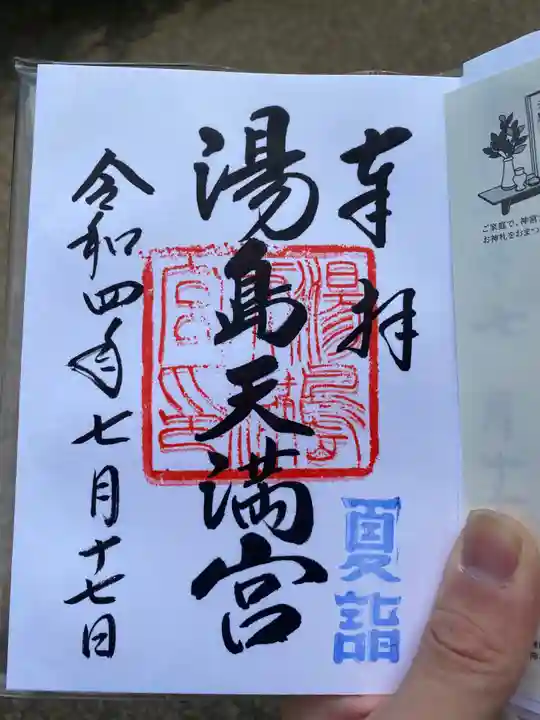 奉拝
湯島天満宮
令和四年七月十七日
夏詣
ご家庭で、神宮
お神札をおまつ